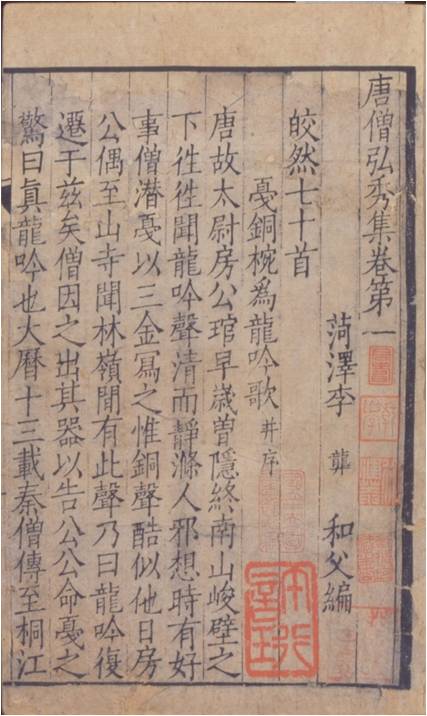 唐僧弘秀集卷第一
菏澤李 龏 和父編
皎然七十首
戛銅椀爲龍吟歌 并序
唐故太尉房公琯早歲曽隱終南山峻壁之
下徃徃聞龍吟聲清而靜滌人邪想時有好
事僧潜戛以三金冩之惟銅聲酷似他日房
公偶至山寺聞林嶺間有此聲乃曰龍吟復
遷于兹矣僧因之出其器以告公公命戛之
驚曰眞龍吟也大曆十三載秦僧傳至桐江